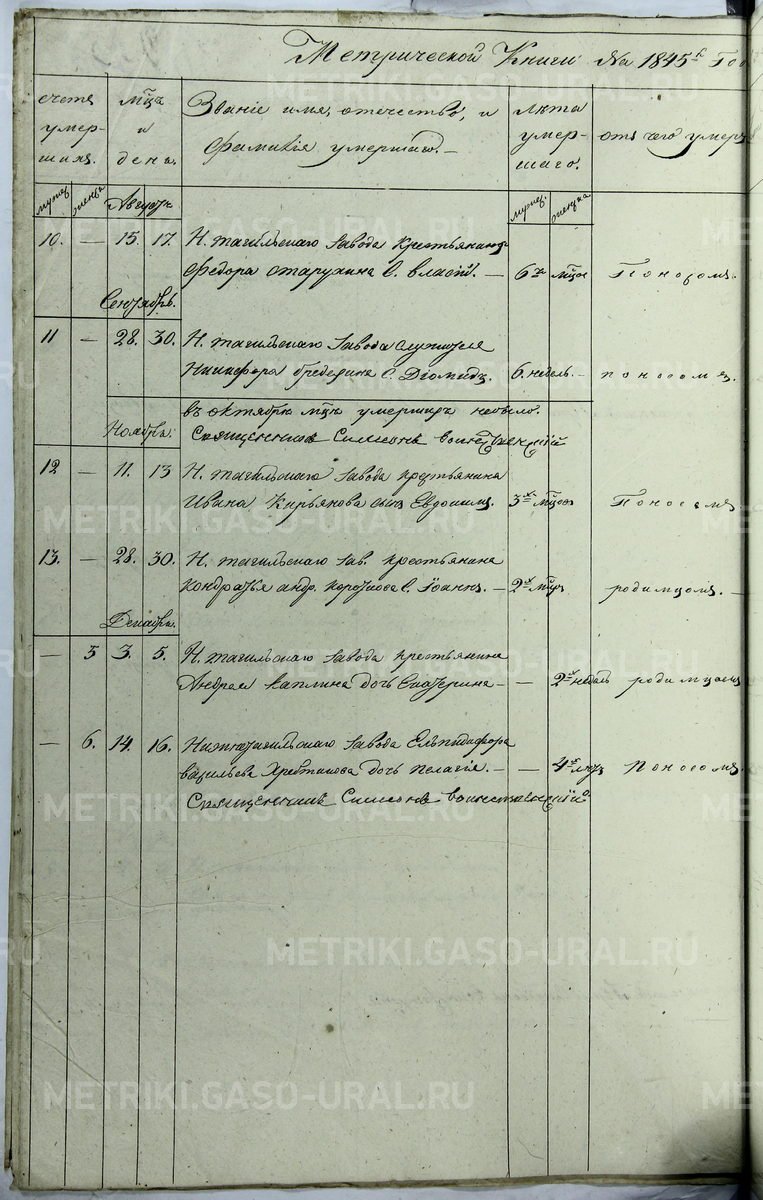 Метрической Книги На 1845й Го
счетъ умер- шихъ.
мца и день.
Званіе имя, отечество, и фамилія умершаго.
лѣта умер- шаго.
отъ чего умер
мужес. женска
мужес. женска
Августъ
10. — 15. 17. Н. тагильскаго завода крестьянина
Федора старухина с. власій. — 6ть мцов Поносомъ.
Сентябрь.
11 — 28. 30. Н. тагильскаго завода служителя
Никифора бредедина с. Діомидъ. 6. недель. — поносомъ.
въ октябрѣ мцѣ умершихъ небыло.
Ноябрь.
Священникъ Симеонъ воинственскій
12 — 11. 13 Н. тагильскаго завода крестьянина
Ивана Кирьянова сынъ Евдокимъ. 3х мцов Поносомъ
13. — 28. 30. Н. тагильскаго зав. крестьянина
Кондратья андр. короткова с. Іоаннъ. — 2х мцъ родимцомъ. —
Декабрь.
— 5 3. 5. Н. тагильскаго завода крестьянина
Андрея каплина дочь Екатерина — — 2х недель родимцомъ
— 6. 14. 16. Нижнетагильскаго завода Елпидифора
васильева Хребтикова дочь пелагія. — — 4х мцъ Поносомъ.
Священникъ Симеонъ воинственскій.
METRIKI.GASO-URAL.RU